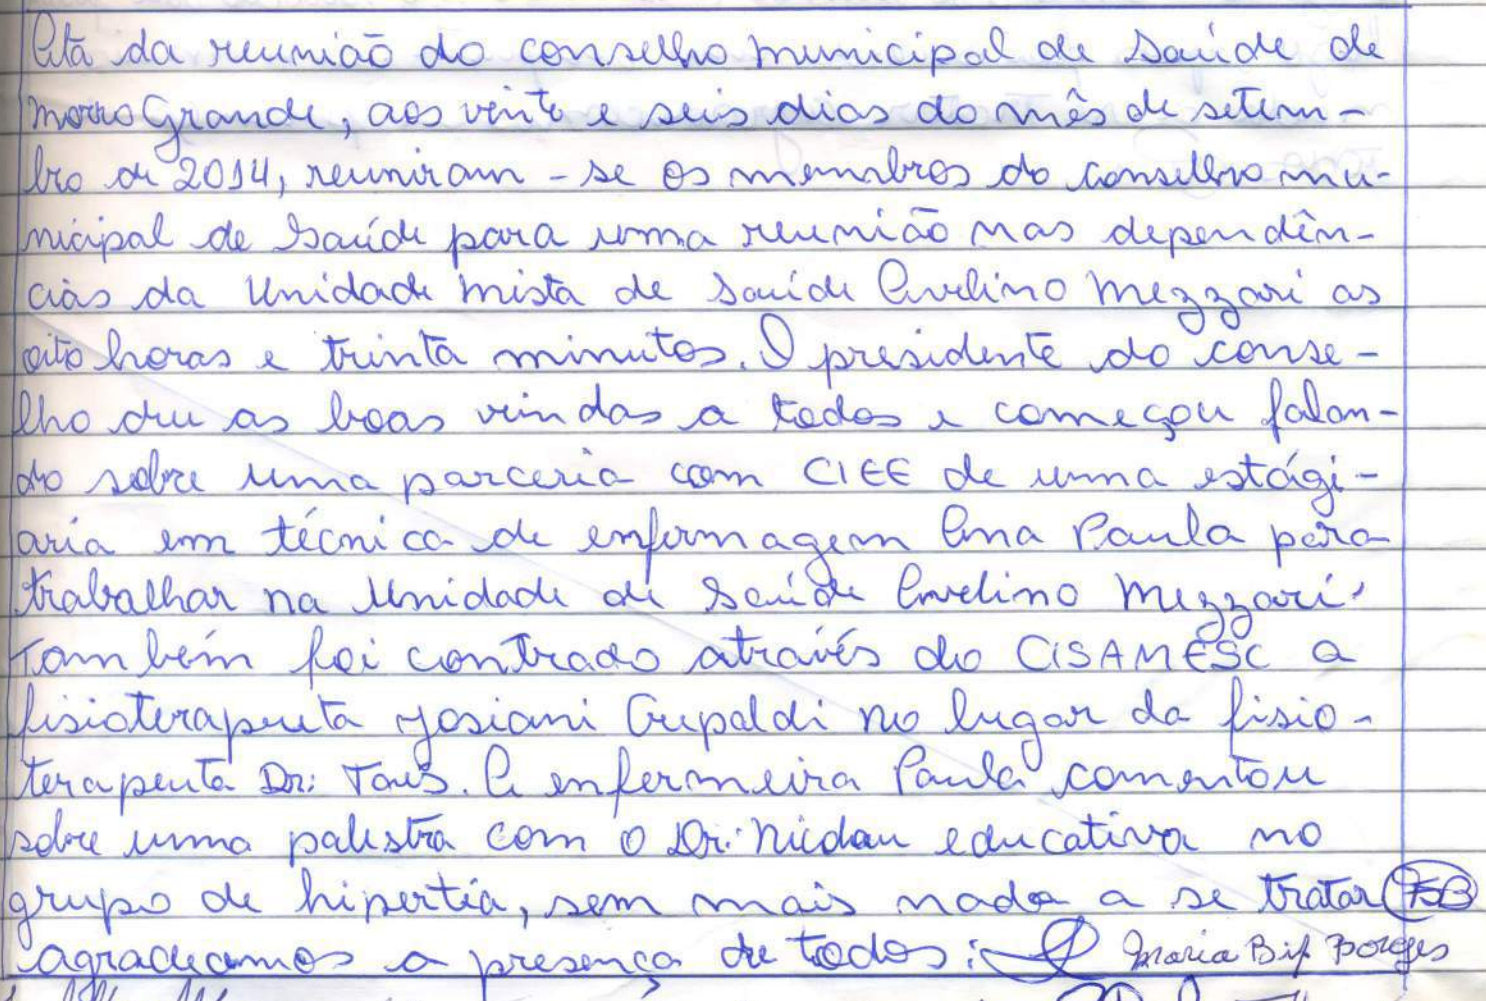 Ata da reunião do conselho municipal de Saúde de
Morro Grande, aos vinte e seis dias do mês de setem-
bro de 2014, reuniram-se os membros do conselho mu-
nicipal de Saúde para uma reunião nas dependên-
cias da Unidade Mista de Saúde Avelino Mezzari as
oito horas e trinta minutos. O presidente do conse-
lho deu as boas vindas a todos e começou falan-
do sobre uma parceria com CIEE de uma estági-
aria em técnica de enfermagem Ana Paula para
trabalhar na Unidade de Saúde Avelino Mezzari.
Também foi contrado através do CISAMESC a
fisioterapeuta Josiani no lugar da fisio-
terapeuta Dr: Taís. A enfermeira Paula comentou
sobre uma palestra com o Dr: educativa no
grupo de hipertia, sem mais nada a se tratar
agradecemos a presença de todos: Maria Bif Borges